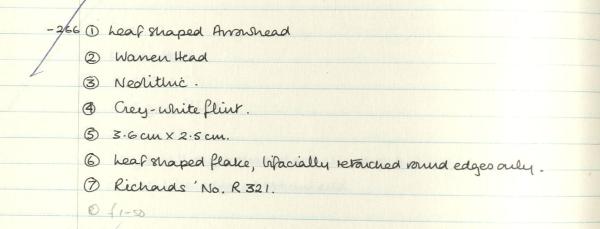 -266 ① Leaf shaped Arrowhead
② Warren Head
③ Neolithic.
④ Grey-white flint.
⑤ 3.6cm x 2.5cm.
⑥ Leaf shaped flake, bifacially retouched round edges only.
⑦ Richards' No. R 321.
⑧ £1-50